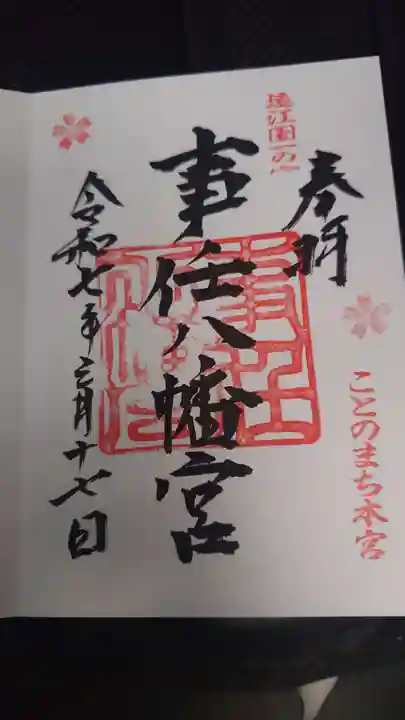 奉拝
遠江国一の宮
ことのまち本宮
事任八幡宮
令和七年三月十七日